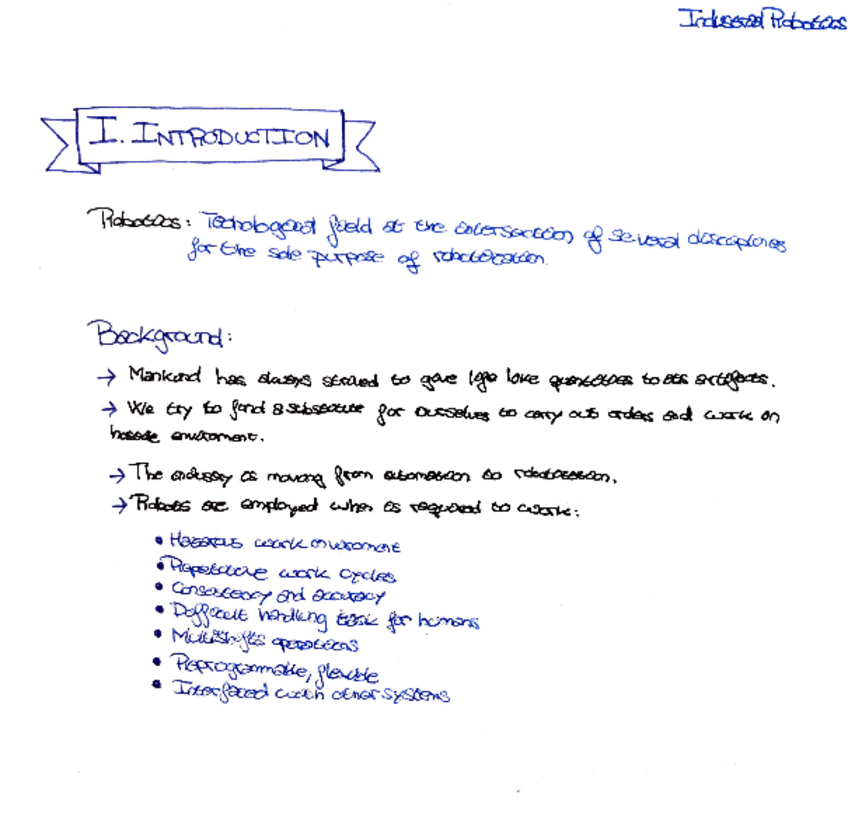 Industrial Robotics
I. INTRODUCTION
Robotics: Technological field at the intersection of several disciplines
for the sole purpose of robotization.
Background:
→ Mankind has always strived to give life like quantities to its artifacts.
→ We try to find a substitute for ourselves to carry out orders and work on
hostile enviroment.
→ The industry is moving from automation to robotization.
→ Robots are employed when is required to work:
• Hazarous work enviroment
• Repetitive work cycles
• Consistency and accuracy
• Difficult handling task for humans
• Multishifts operations
• Reprogrammable, flexible
• Interfaced with other systems